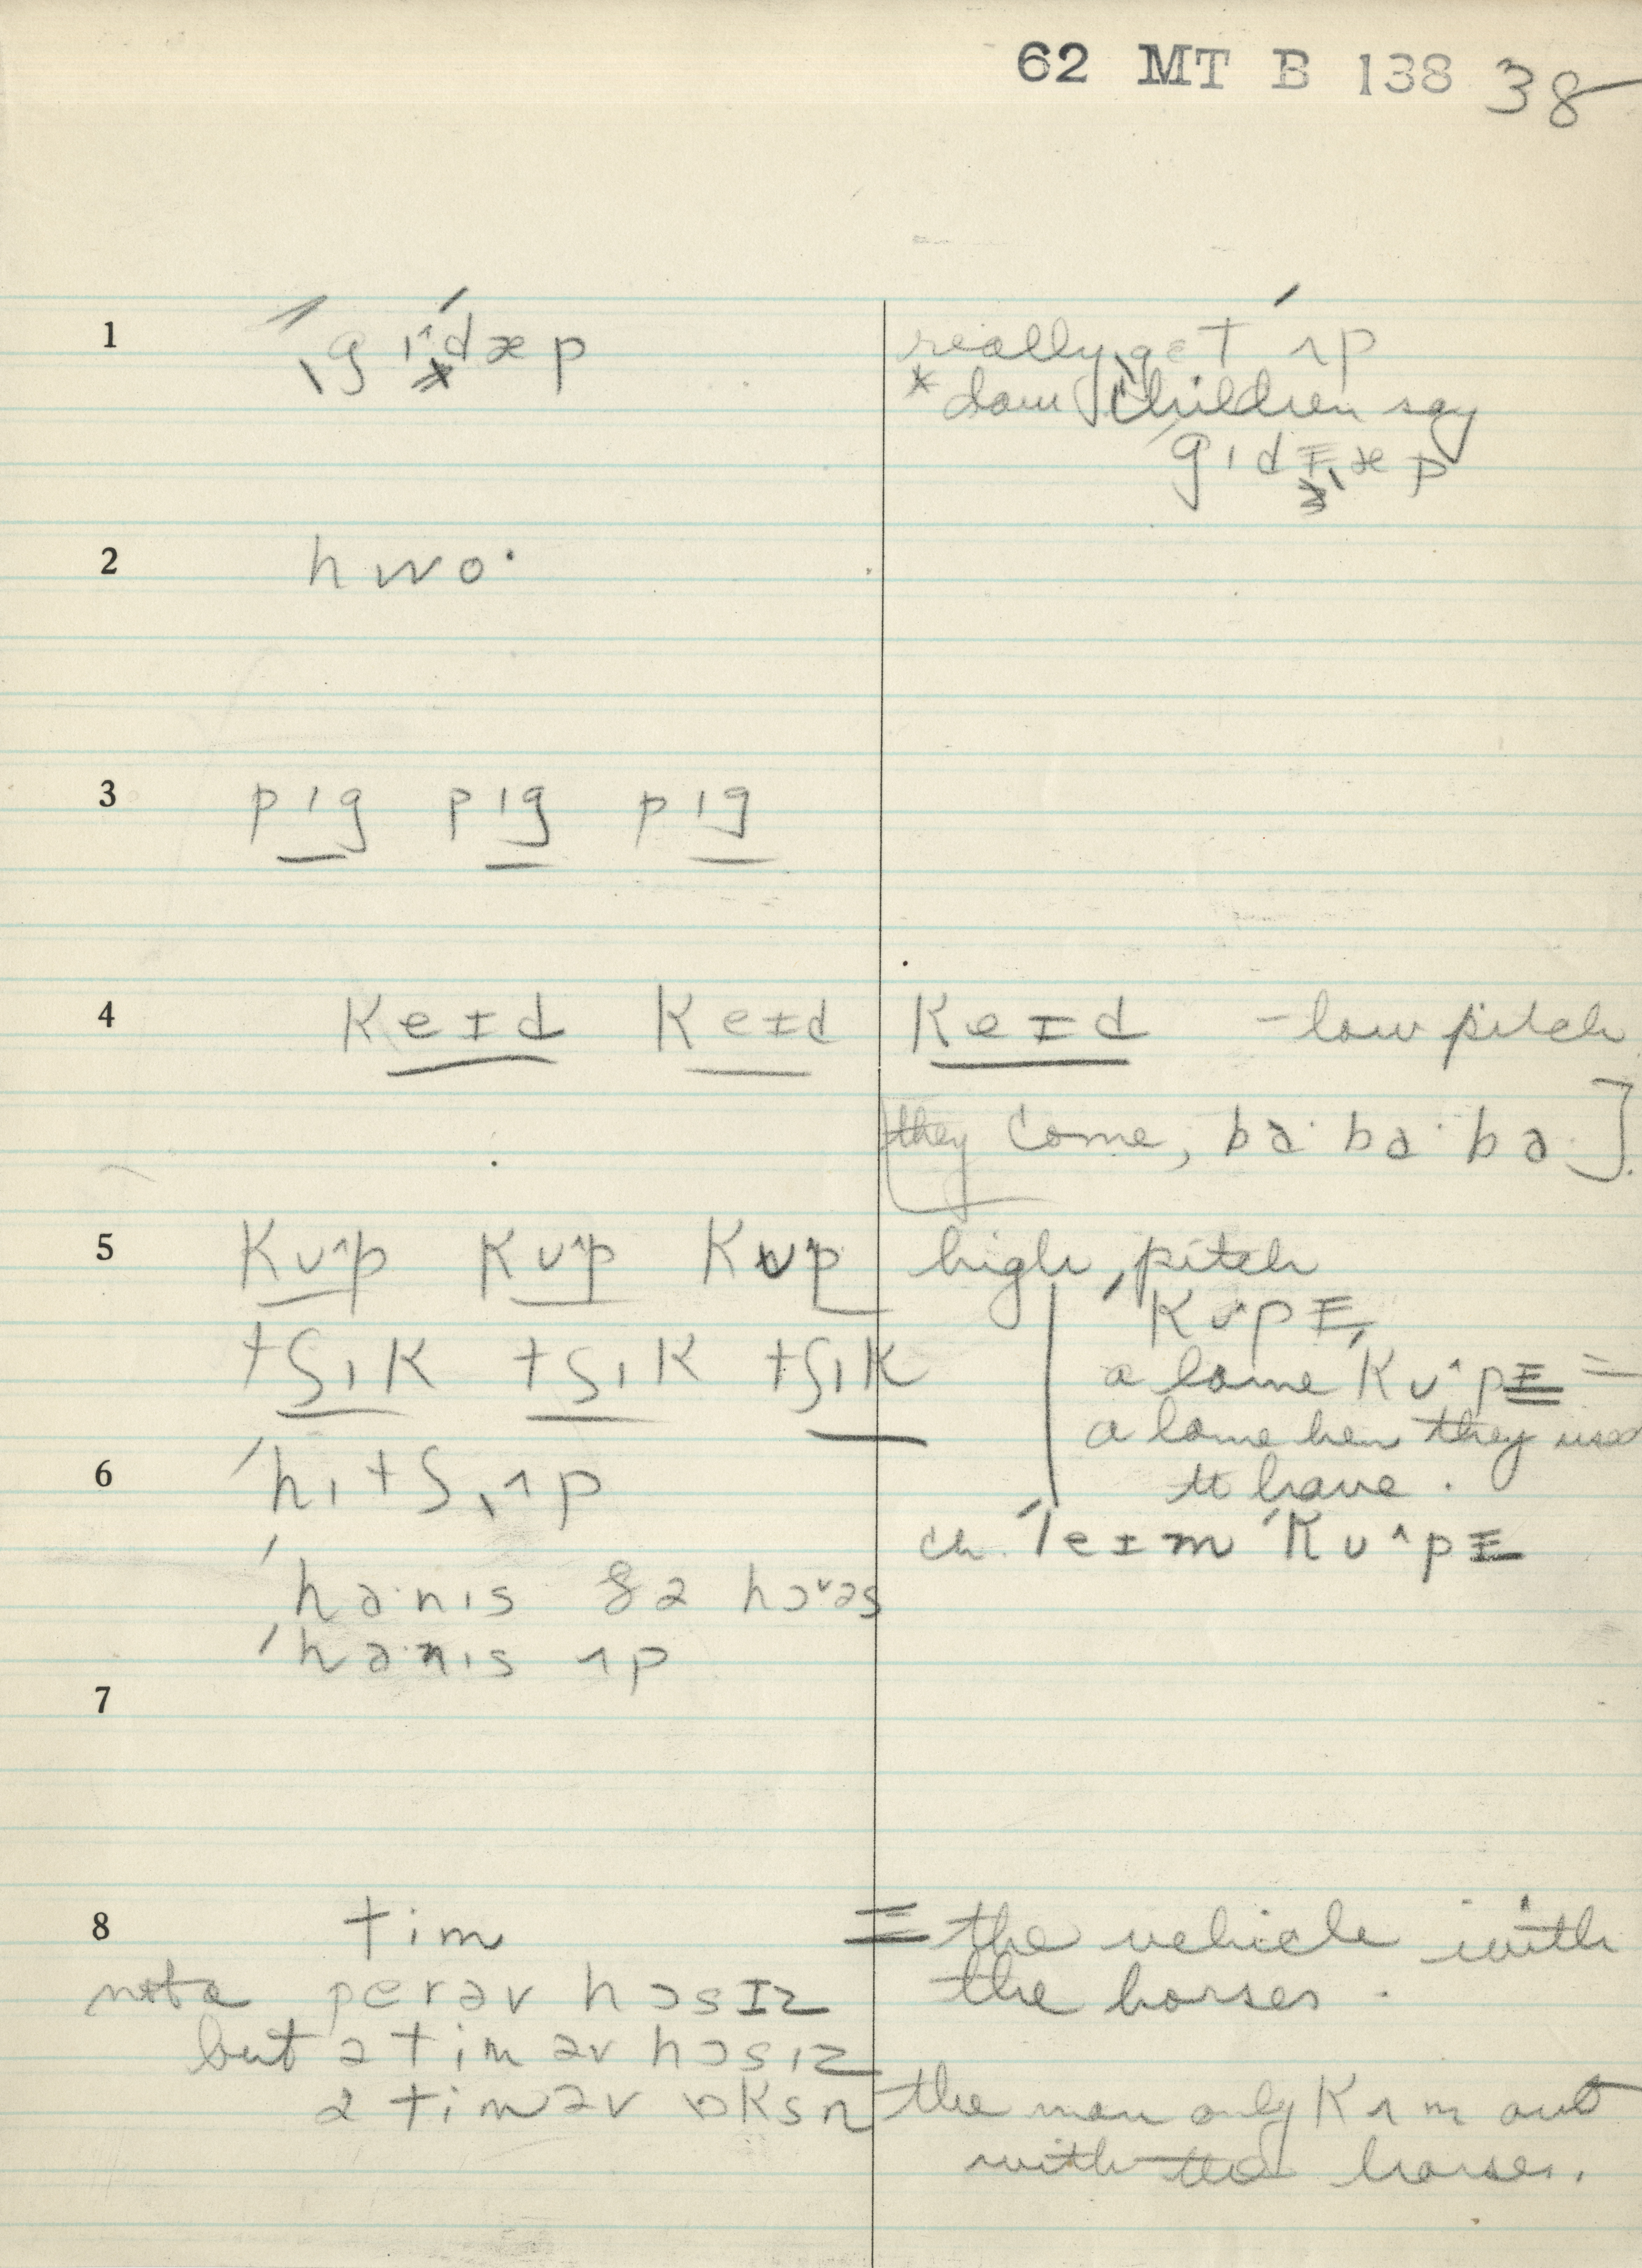 62 MT B 138 38
1 ˌgɪˆˈdæp really ˌgɛt ˈʌp
* dam children say
ˈgɪdɪˌæp
2 hwo·
3 pɪg pɪg pɪg
4 keɪd keɪd keɪd – low pitch
[they come, bə· bə· bə·].
5 kʊˆp kʊˆp kʊp high pitch
ˈkʊˆpɪ
tʃɪk tʃɪk tʃɪk a lame kʊˆpɪ =
a lame hen they used
to have.
6 ˈhɪtʃˌʌp
ch. ˈleɪm ˈkʊˆpɪ
ˈha·nɪs ðə hɔˇəs
ˈha·nɪs ʌp
7
8 tim = the vehicle with
the horses.
not a pɛrəv hɔsɪz
but ə tim əv hɔsɪz
ə tim əv ɒksn the man only kʌm out
with the horses.